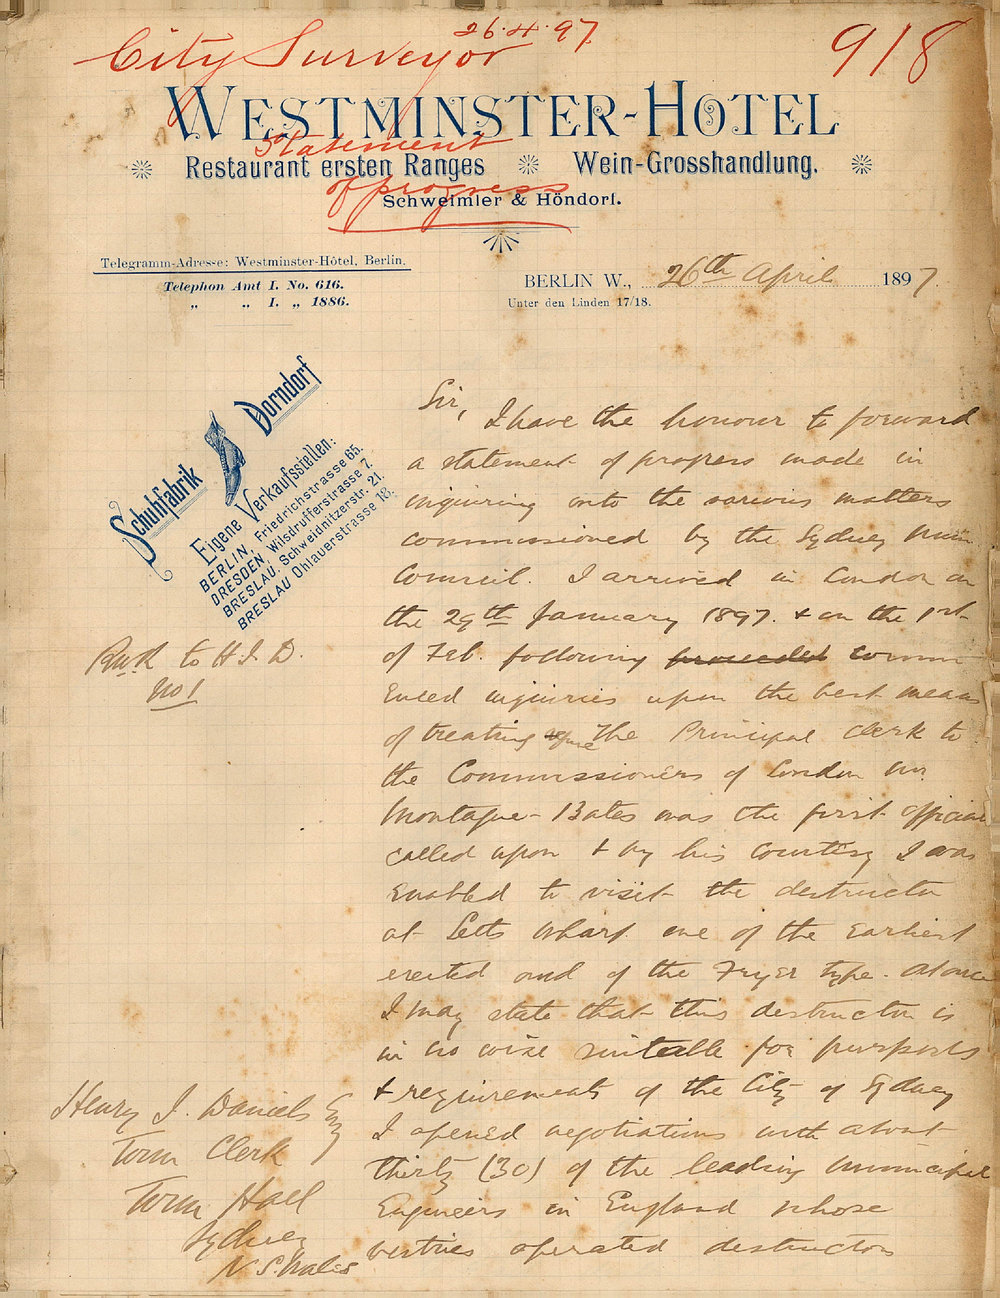 26.4.97.
City Surveyor
918
WESTMINSTER-HOTEL
Statement
Restaurant ersten Ranges Wein-Grosshandlung.
of progress
Schweimler & Höndorf.
Telegramm-Adresse: Westminster-Hôtel, Berlin.
Telephon Amt I. No. 616.
„ „ I. „ 1886.
BERLIN W., 26th April 1897.
Unter den Linden 17/18.
Schuhfabrik Dorndorf
Eigene Verkaufsstellen:
BERLIN, Friedrichstrasse 65.
DRESDEN, Wilsdrufferstrasse 7.
BRESLAU, Schweidnitzerstr. 21.
BRESLAU Ohlauerstrasse 18.
Sir,
I have the honour to forward
a statement of progress made in
inquiring into the various matters
commissioned by the Sydney Mun.
Council. I arrived in London on
the 29th January 1897. & on the 1st
of Feb. following proceeded comm-
enced inquiries upon the best means
of treating refuse The Principal Clerk to
the Commissioners of London Mr.
Montague-Bates was the first official
called upon & by his courtesy I was
enabled to visit the destructor
at Letts Wharf one of the earliest
erected and of the Fryer type. At once
I may state that this destructor is
in no wise suitable for purposes
& requirements of the City of Sydney
I opened negotiations with about
thirty (30) of the leading Municipal
Engineers in England whose
vestries operated destructors
to H.J.D.
No 1
Henry J. Daniels Esq
Town Clerk
Town Hall
Sydney
N.S. Wales